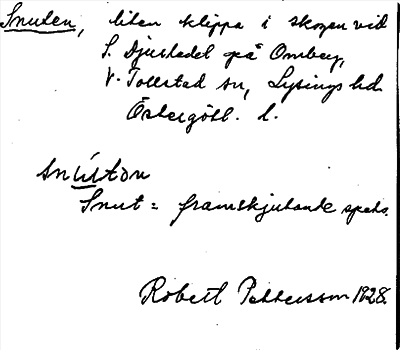 Snuten, liten klippa i skogen vid
S. Djurledet på Omberg,
V. Tollstad sn, Lysings hd
Östergötl. l.
snúton
Snut = framskjutande spets.
Robert Pettersson 1928.